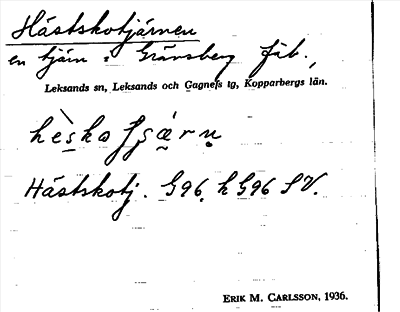 Hästskotjärnen
en tjärn i Gränsberg fäb.,
Leksands sn, Leksands och Gagnefs tg, Kopparbergs län.
Hästskotj. G96, k G96 SV.
ERIK M. CARLSSON, 1936.